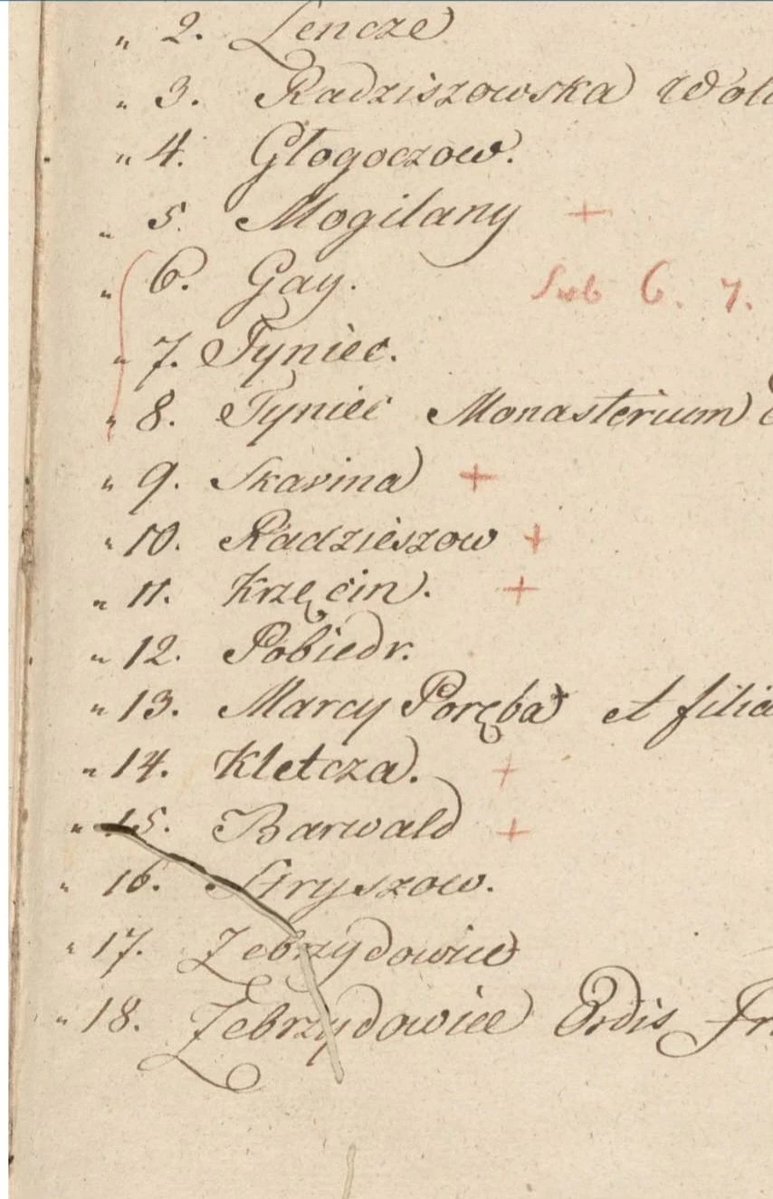 " 2. Lencze
" 3. Radziszowska Wol
" 4. Głogoczow.
" 5. Mogilany +
" 6. Gay. Sub 6. 7.
" 7. Tyniec.
" 8. Tyniec Monasterium
" 9. Skavina +
" 10. Radzieszow +
" 11. Krzęcin. +
" 12. Pobiedr.
" 13. Marcy Poręba et filia
" 14. Kletcza. +
" 15. Barwald +
" 16. Stryszow.
" 17. Zebrzydowice
" 18. Zebrzydowice Ordis Fr